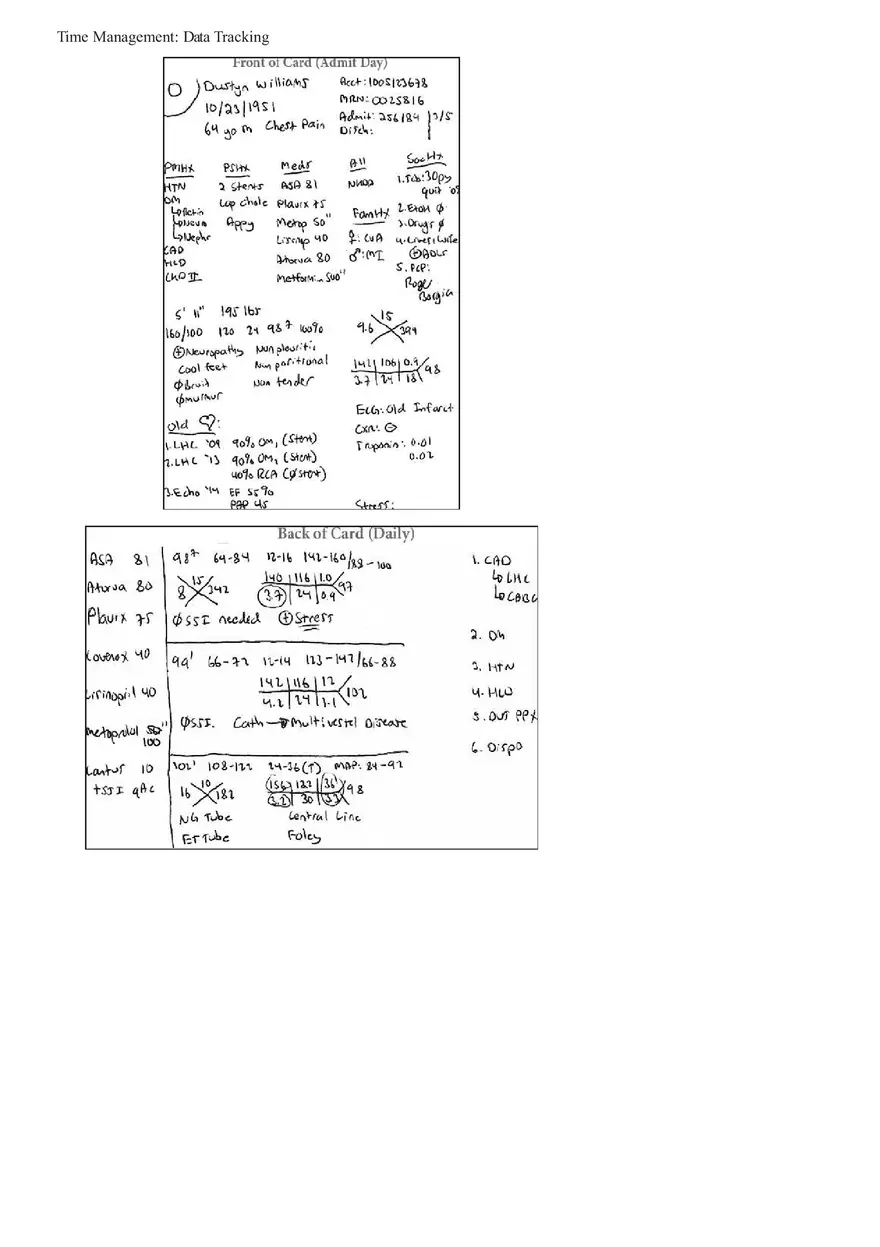 Time Management: Data Tracking
Front of Card (Admit Day)
Dustyn Williams Acct: 1005123678
10/23/1951 MRN: 0025816
64 yo m Chest Pain Admit: 256184 7/5
Disch:
PMHx PSHx Meds All SocHx
HTN 2 Stents ASA 81 NKDA 1. Tob: 30py
DM Lap Chole Plavix 75 quit '09
↳Retin Appy Metop 50" FamHx 2. EtOH Ø
↳Neuro Lisinop 40 ♀: CVA 3. Drugs Ø
↳Nephr Atorva 80 ♂: MI 4. Lives: Wife
CAD Metformin 500" ⊕ADLs
HLD 5. PCP:
CKD II Roger
Borgia
5' 11" 195 lbs
160/100 120 24 98⁷ 100%
15
9.6 394
⊕Neuropathy Non pleuritic
Cool feet Non positional
Ø Bruit Non tender
Ø murmur
142 106 0.9 98
3.7 24 18
Old ♡:
1. LHC '09 90% OM, (Stent)
2. LHC '13 90% OM, (Stent)
40% RCA (Ø stent)
3. Echo '14 EF 55%
PAP 45
ECG: Old Infarct
CXR: ⊖
Troponin: 0.01
0.02
Stress:
Back of Card (Daily)
ASA 81
Atorva 80
Plavix 75
Lovenox 40
Lisinopril 40
Metoprolol 50"
100
Lantus 10
+SSI qAC
98⁷ 64-84 12-16 142-160/88-100
15
8 342
140 116 1.0 97
3.7 24 0.9
Ø SSI needed ⊕ Stress
99' 66-72 12-14 123-147/66-88
142 116 12 102
4.2 24 1.1
Ø SSI. Cath → Multivessel Disease
102' 108-122 24-36 (T) MAP: 84-92
10
16 182
156 122 36 98
3.2 30 3.3
NG Tube Central Line
ET Tube Foley
1. CAD
↳ LHC
↳ CABG
2. Dm
3. HTN
4. HLD
5. DVT PPX
6. Dispo